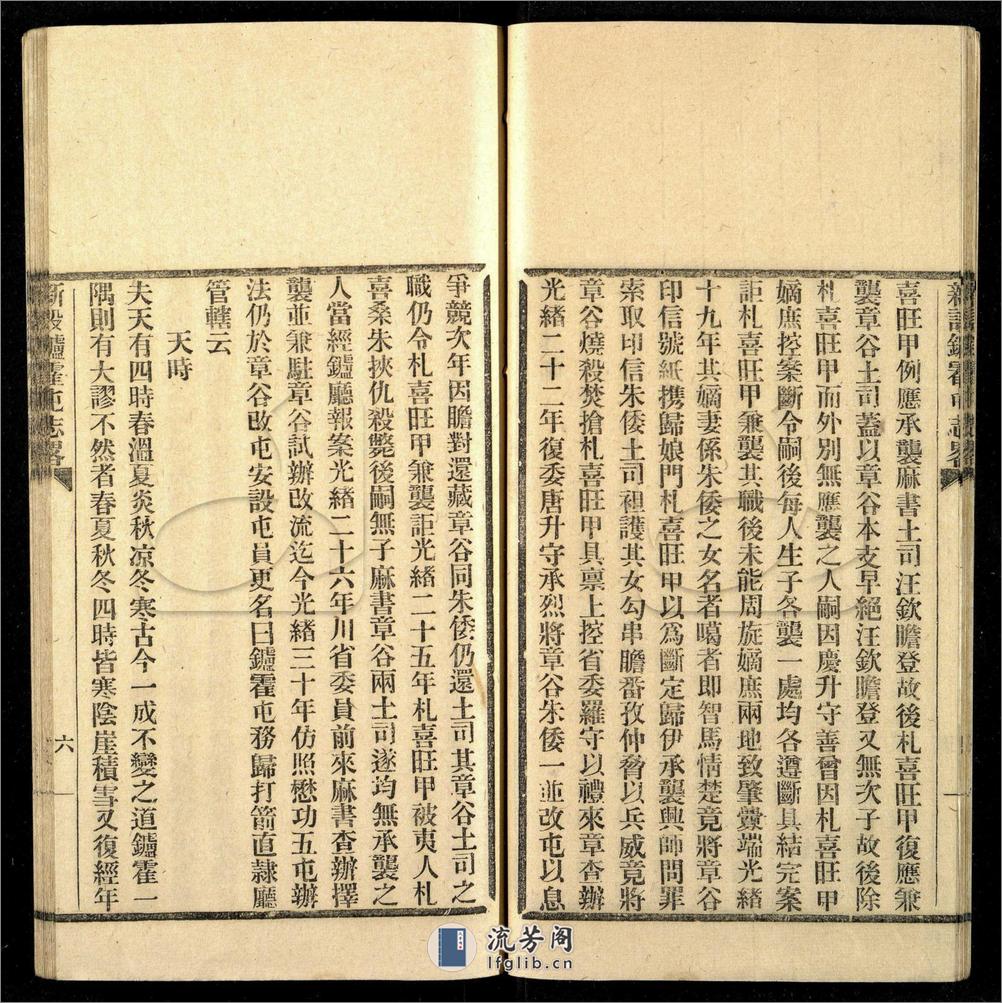 喜旺甲例應承襲麻書土司汪欽瞻登故後札喜旺甲復應兼
襲章谷土司蓋以章谷本支早絕汪欽瞻登又無次子故後除
札喜旺甲而外別無應襲之人嗣因慶升守善曾因札喜旺甲
嫡庶控案斷令嗣後每人生子各襲一處均各遵斷具結完案
詎札喜旺甲兼襲其職後未能周旋嫡庶兩地致肇釁端光緒
十九年其嫡妻係朱倭之女名者噶者即智馬情楚竟將章谷
印信號紙携歸娘門札喜旺甲以爲斷定歸伊承襲興師問罪
索取印信朱倭土司袒護其女勾串瞻番孜仲脅以兵威竟將
章谷燒殺焚搶札喜旺甲具禀上控省委羅守以禮來章查辦
光緒二十二年復委唐升守承烈將章谷朱倭一並改屯以息
爭競次年因瞻對還藏章谷同朱倭仍還土司其章谷土司之
職仍令札喜旺甲兼襲詎光緒二十五年札喜旺甲被夷人札
喜桑朱挾仇殺斃後嗣無子麻書章谷兩土司遂均無承襲之
人當經鑪廳報案光緒二十六年川省委員前來麻書查辦擇
襲並兼駐章谷試辦改流迄今光緒三十年仿照懋功五屯辦
法仍於章谷改屯安設屯員更名曰鑪霍屯務歸打箭直隷廳
管轄云
天時
夫天有四時春溫夏炎秋凉冬寒古今一成不變之道鑪霍一
隅則有大謬不然者春夏秋冬四時皆寒陰崖積雪又復經年
新設鑪霍屯志畧
六
流芳阁
lfglib.cn